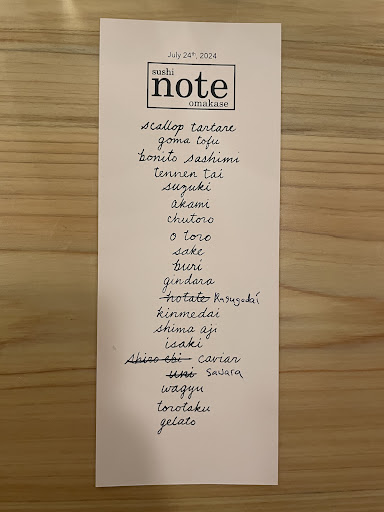 July 24th, 2024
sushi
note
omakase
scallop tartare
goma tofu
bonito sashimi
tennen tai
suzuki
akami
chutoro
o toro
sake
buri
gindara
hotate Kasugodai
kinmedai
shima aji
isaki
shiro ebi caviar
uni Sawara
wagyu
torotaku
gelato